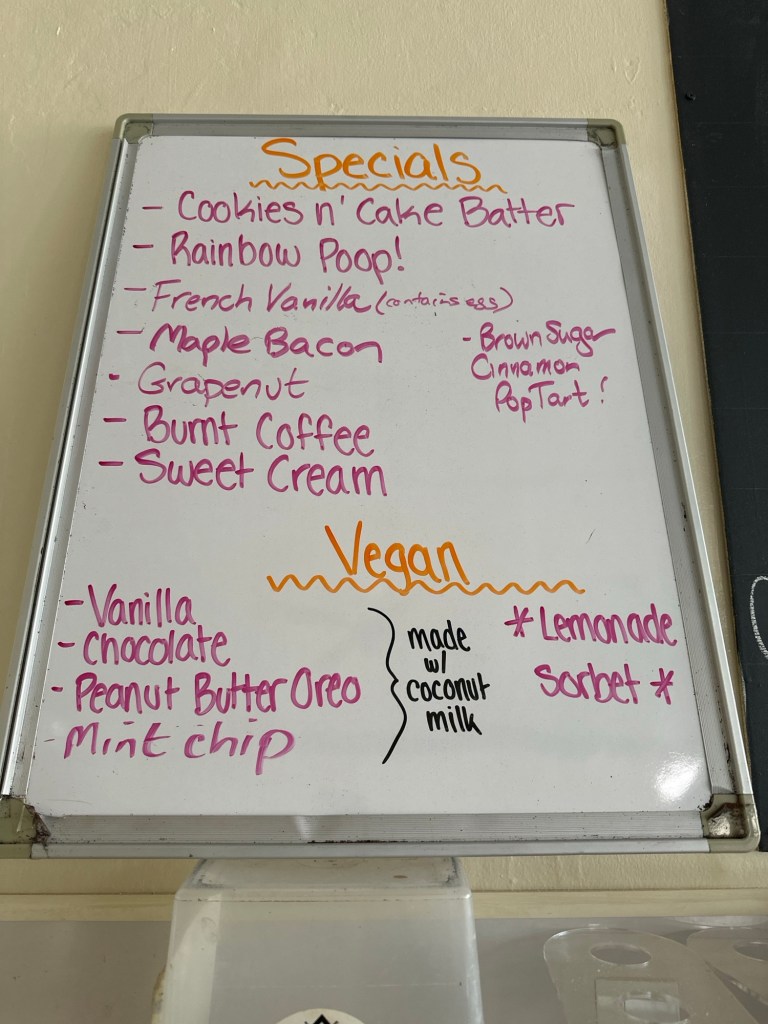 Specials
- Cookies n' Cake Batter
- Rainbow Poop!
- French Vanilla (contains egg)
- Maple Bacon
- Grapenut
- Burnt Coffee
- Sweet Cream
- Brown Sugar
Cinnamon
PopTart!
Vegan
- Vanilla
- Chocolate
- Peanut Butter Oreo
- Mint chip
made
w/
coconut
milk
* Lemonade
Sorbet *